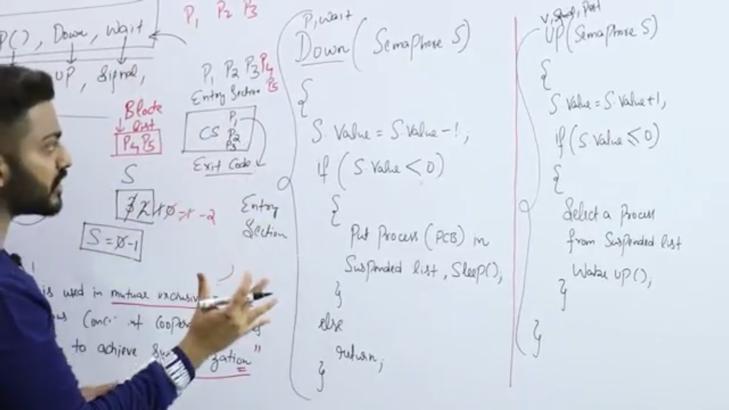 P(), Down, Wait
UP, Signal,
P1 P2 P3
P1 P2 P3 P4
P5
Entry Section
CS P1
P2
P3
Exit Code
Block
list
P4 P5
S
3 2 1 0 -1 -2
S = 0 -1
Entry
Section
is used in mutual exclusive
to achieve
P, Wait
Down (Semaphore S)
{
S Value = S Value - 1;
if (S Value < 0)
{
Put Process (PCB) in
Suspended list, Sleep();
}
else
return;
}
V, Signal, Post
UP (Semaphore S)
{
S Value = S Value + 1;
if (S Value ≤ 0)
{
Select a Process
from Suspended list
Wake UP();
}
}